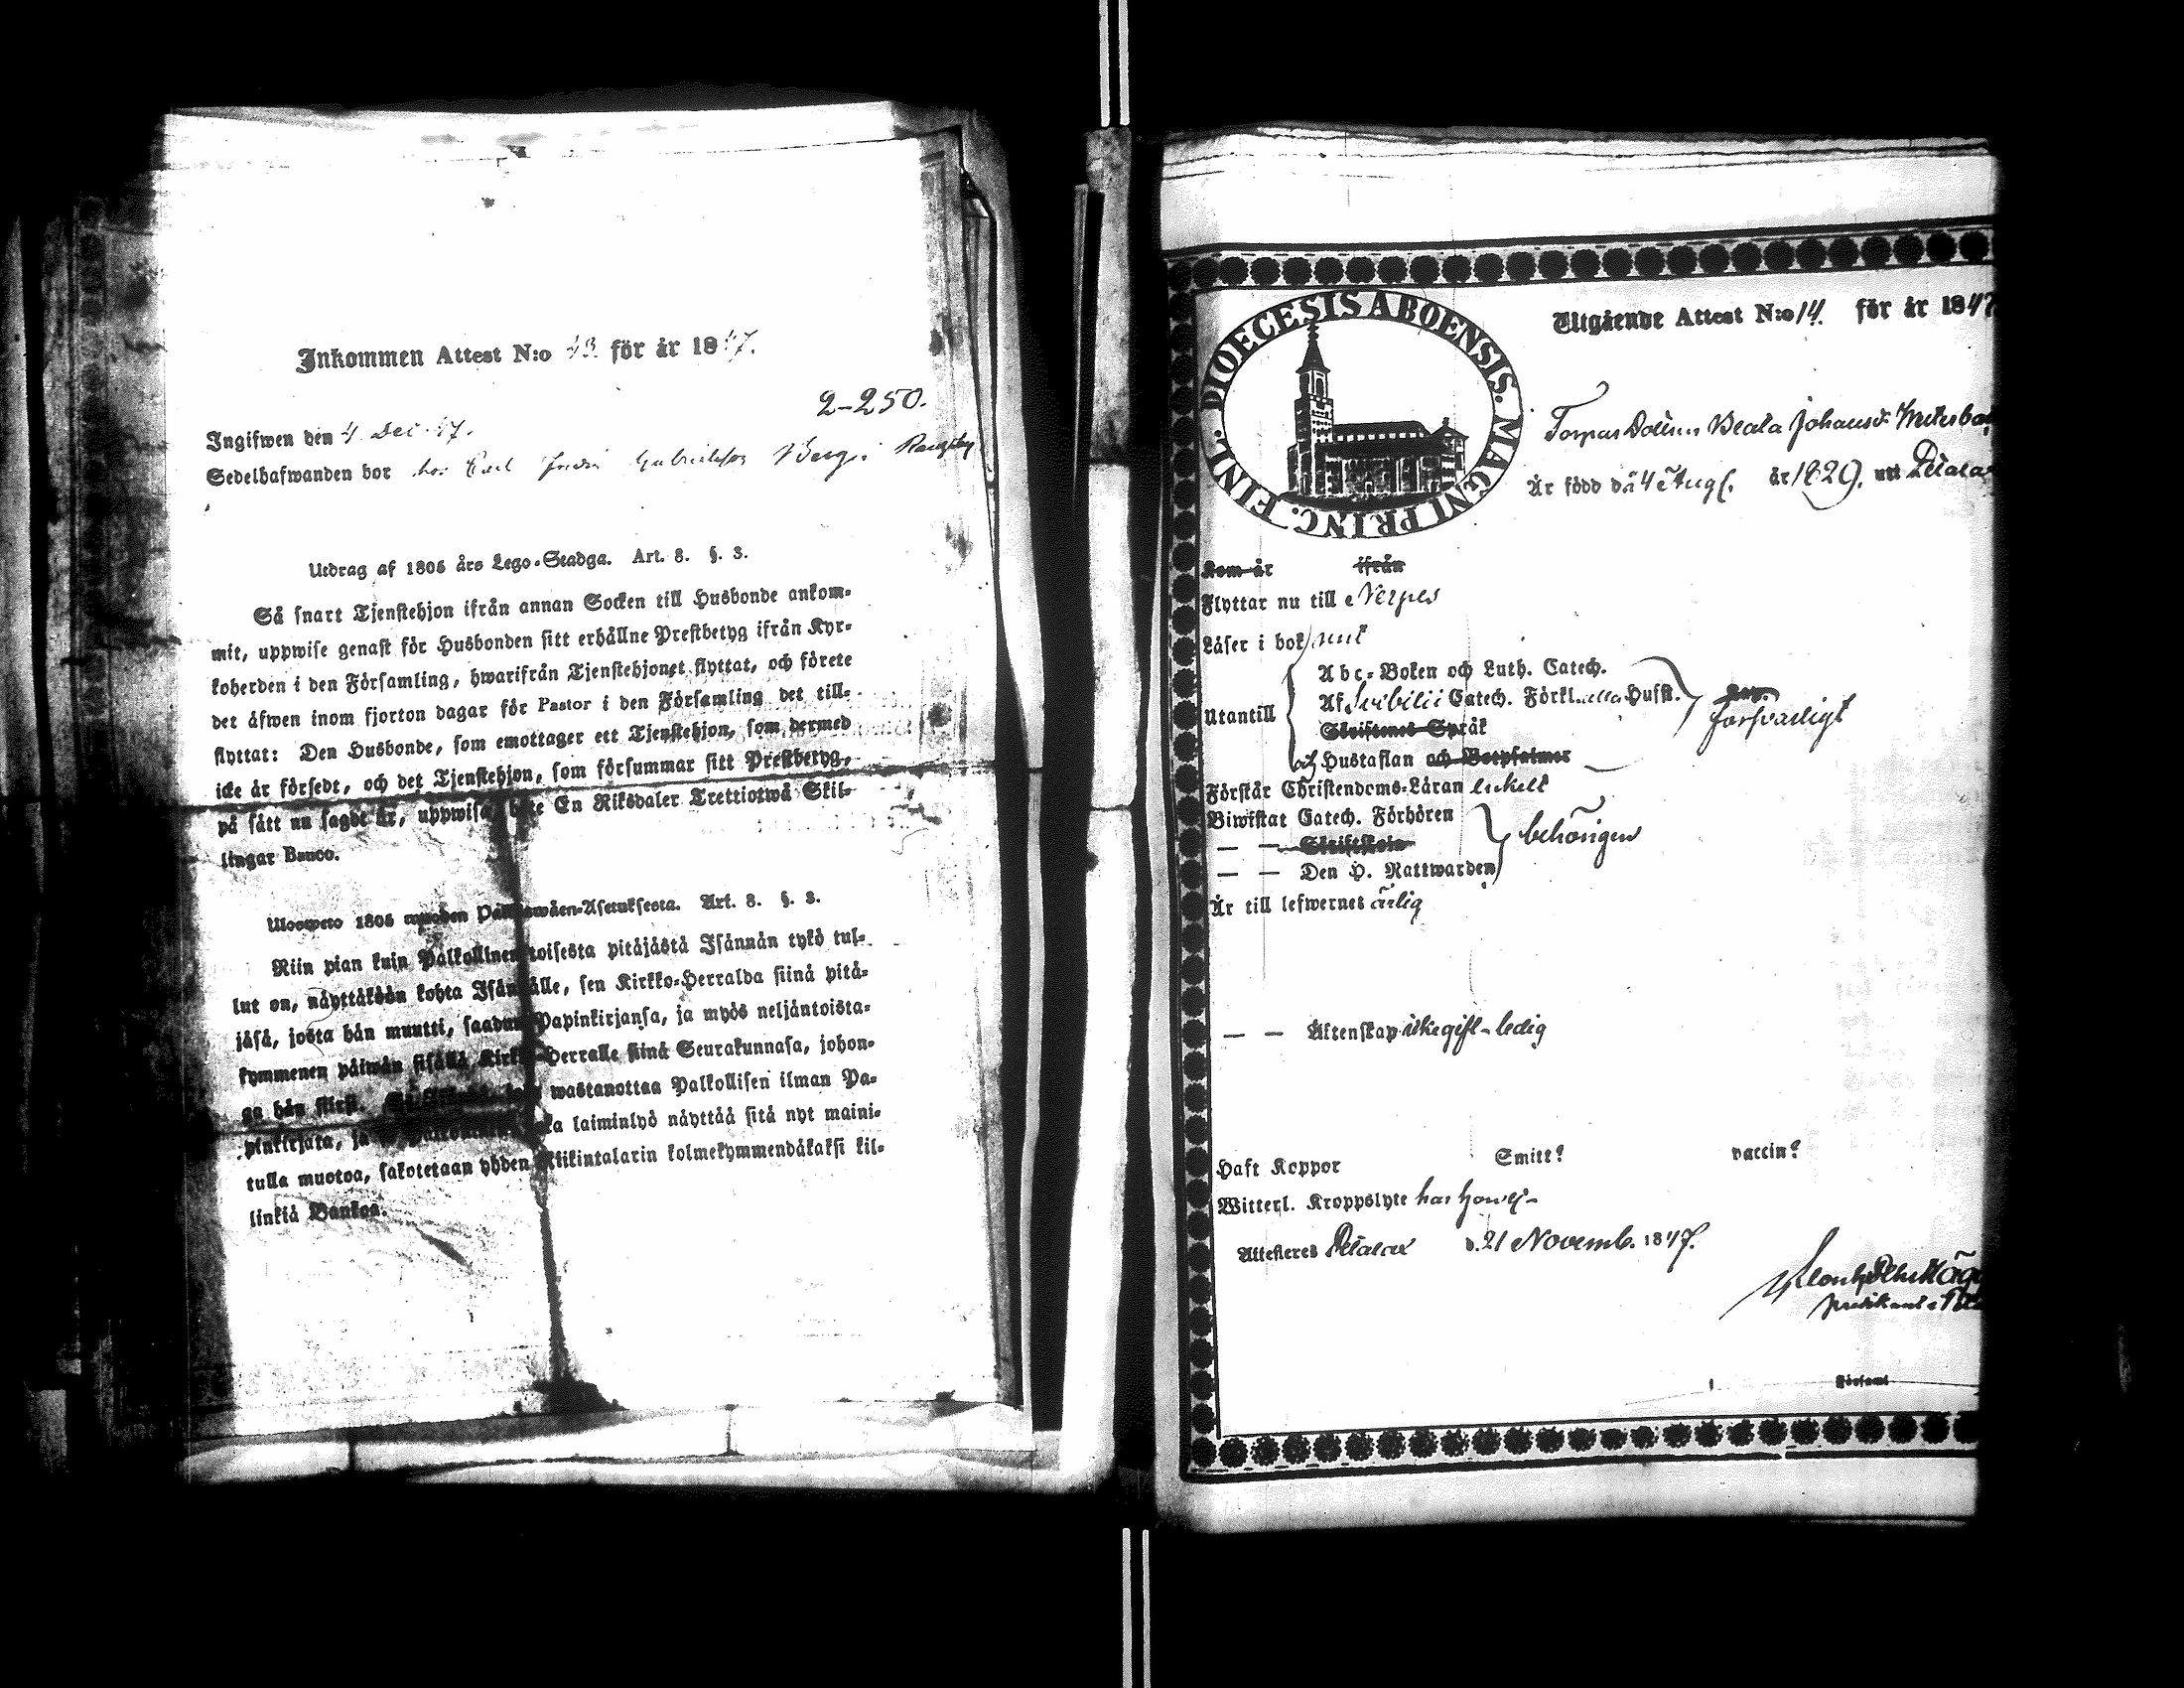 Inkommen Attest N:o 43. för år 1847.
2-250.
Ingifwen den 4 Dec. 47.
Sedelhafwanden bor hos Carl Gabrielsson Berg i
Utdrag af 1805 års Lego-Stadga. Art. 8. §. 3.
Så snart Tjenstehjon ifrån annan Socken till Husbonde ankom-
mit, uppwise genast för Husbonden sitt erhållne Prestbetyg ifrån Kyr-
koherden i den Församling, hwarifrån Tjenstehjonet flyttat, och förete
det äfwen inom fjorton dagar för Pastor i den Församling det till-
flyttat: Den Husbonde, som emottager ett Tjenstehjon, som dermed
icke är försedt, och det Tjenstehjon, som försummar sitt Prestbetyg,
på sätt nu sagdt är, uppwisa, böte En Riksdaler Trettiotwå Skil-
lingar Banco.
Uloswetto 1805 wuoden Palkkawäen-Asetuksesta. Art. 8. §. 3.
Niin pian kuin Palkollinen toisesta pitäjästä Isännän tykö tul-
lut on, näyttäköön kohta Isännälle, sen Kirkko-Herralda siinä pitä-
jäsä, josta hän muutti, saadun Papinkirjansa, ja myös neljäntoista-
kymmenen päiwän sisällä Kirkko-Herralle siinä Seurakunnasa, johon-
ga hän siirsi. wastanottaa Palkollisen ilman Pa-
pinkirjata, ja laiminlyö näyttää sitä nyt maini-
tulla muotoa, sakotetaan yhden Riikintalarin kolmekymmendäkaksi kil-
linkiä Bankoa.
DIOECESIS ABOENSIS. MAGNI PRINC. FINL.
Utgående Attest N:o 14. för år 1847
Torpar Dottern Beata Johansdr
Är född då 4 Aug. år 1829. uti Petalax
Kom år ifrån
Flyttar nu till Nerpes
Läser i bok rent
Utantill
Abc-Boken och Luth. Catech.
Af Svebilii Catech. Förkl. Husst.
Skriftenes Språk
och Hustaflan och Botpsalmer
förswarligt
Förstår Christendoms-Läran enkelt
Biwistat Catech. Förhören
— — Skriftskola
— — Den H. Nattwarden
behörigen
Är till lefwernet ärlig
— — Äktenskap icke gift - ledig
Haft Koppor Smitt? vaccin?
Witterl. Kroppslyte har hon ej -
Attesteres Petalax d. 21 Novemb. 1847.
predikant i
Församl